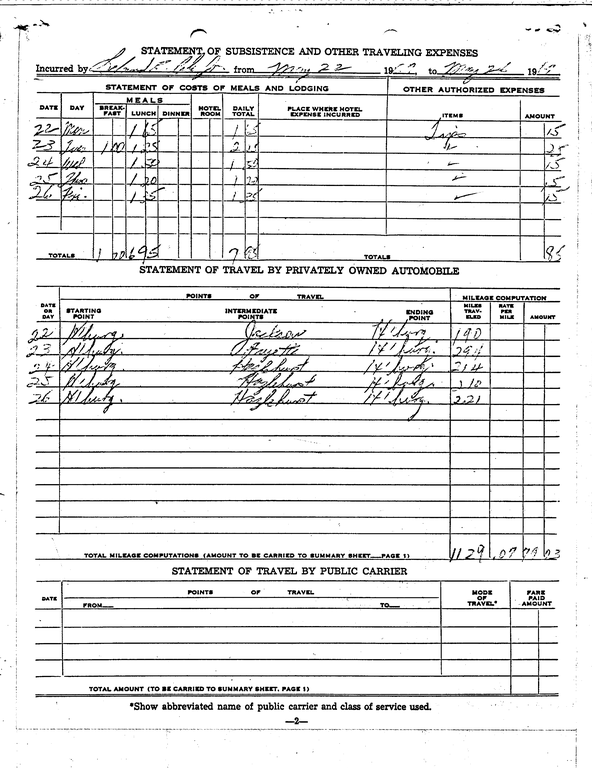 STATEMENT OF SUBSISTENCE AND OTHER TRAVELING EXPENSES
Incurred by from May 22 19 to May 26 19
STATEMENT OF COSTS OF MEALS AND LODGING OTHER AUTHORIZED EXPENSES
MEALS
DATE DAY BREAK-FAST LUNCH DINNER HOTEL ROOM DAILY TOTAL PLACE WHERE HOTEL EXPENSE INCURRED ITEMS AMOUNT
22 Mon 1 65 1 65 Tips 15
23 Tues 1 00 1 25 2 25
24 Wed 1 50 1 50 15
25 Thur 1 20 1 20 15
26 Fri. 1 35 1 35 15
TOTALS 1 00 6 95 7 95 TOTALS 85
STATEMENT OF TRAVEL BY PRIVATELY OWNED AUTOMOBILE
POINTS OF TRAVEL MILEAGE COMPUTATION
DATE OR DAY STARTING POINT INTERMEDIATE POINTS ENDING POINT MILES TRAV-ELED RATE PER MILE AMOUNT
22 H'burg. Jackson H'burg 190
23 H'burg. Fayette H'burg. 294
24 H'burg Hazlehurst H'burg. 214
25 H'burg. Hazlehurst H'burg. 210
26 H'burg. Hazlehurst H'burg. 221
TOTAL MILEAGE COMPUTATIONS (AMOUNT TO BE CARRIED TO SUMMARY SHEET—PAGE 1) 1129 .07 79 03
STATEMENT OF TRAVEL BY PUBLIC CARRIER
DATE POINTS OF TRAVEL MODE OF TRAVEL* FARE PAID AMOUNT
FROM— TO—
TOTAL AMOUNT (TO BE CARRIED TO SUMMARY SHEET, PAGE 1)
*Show abbreviated name of public carrier and class of service used.
—2—